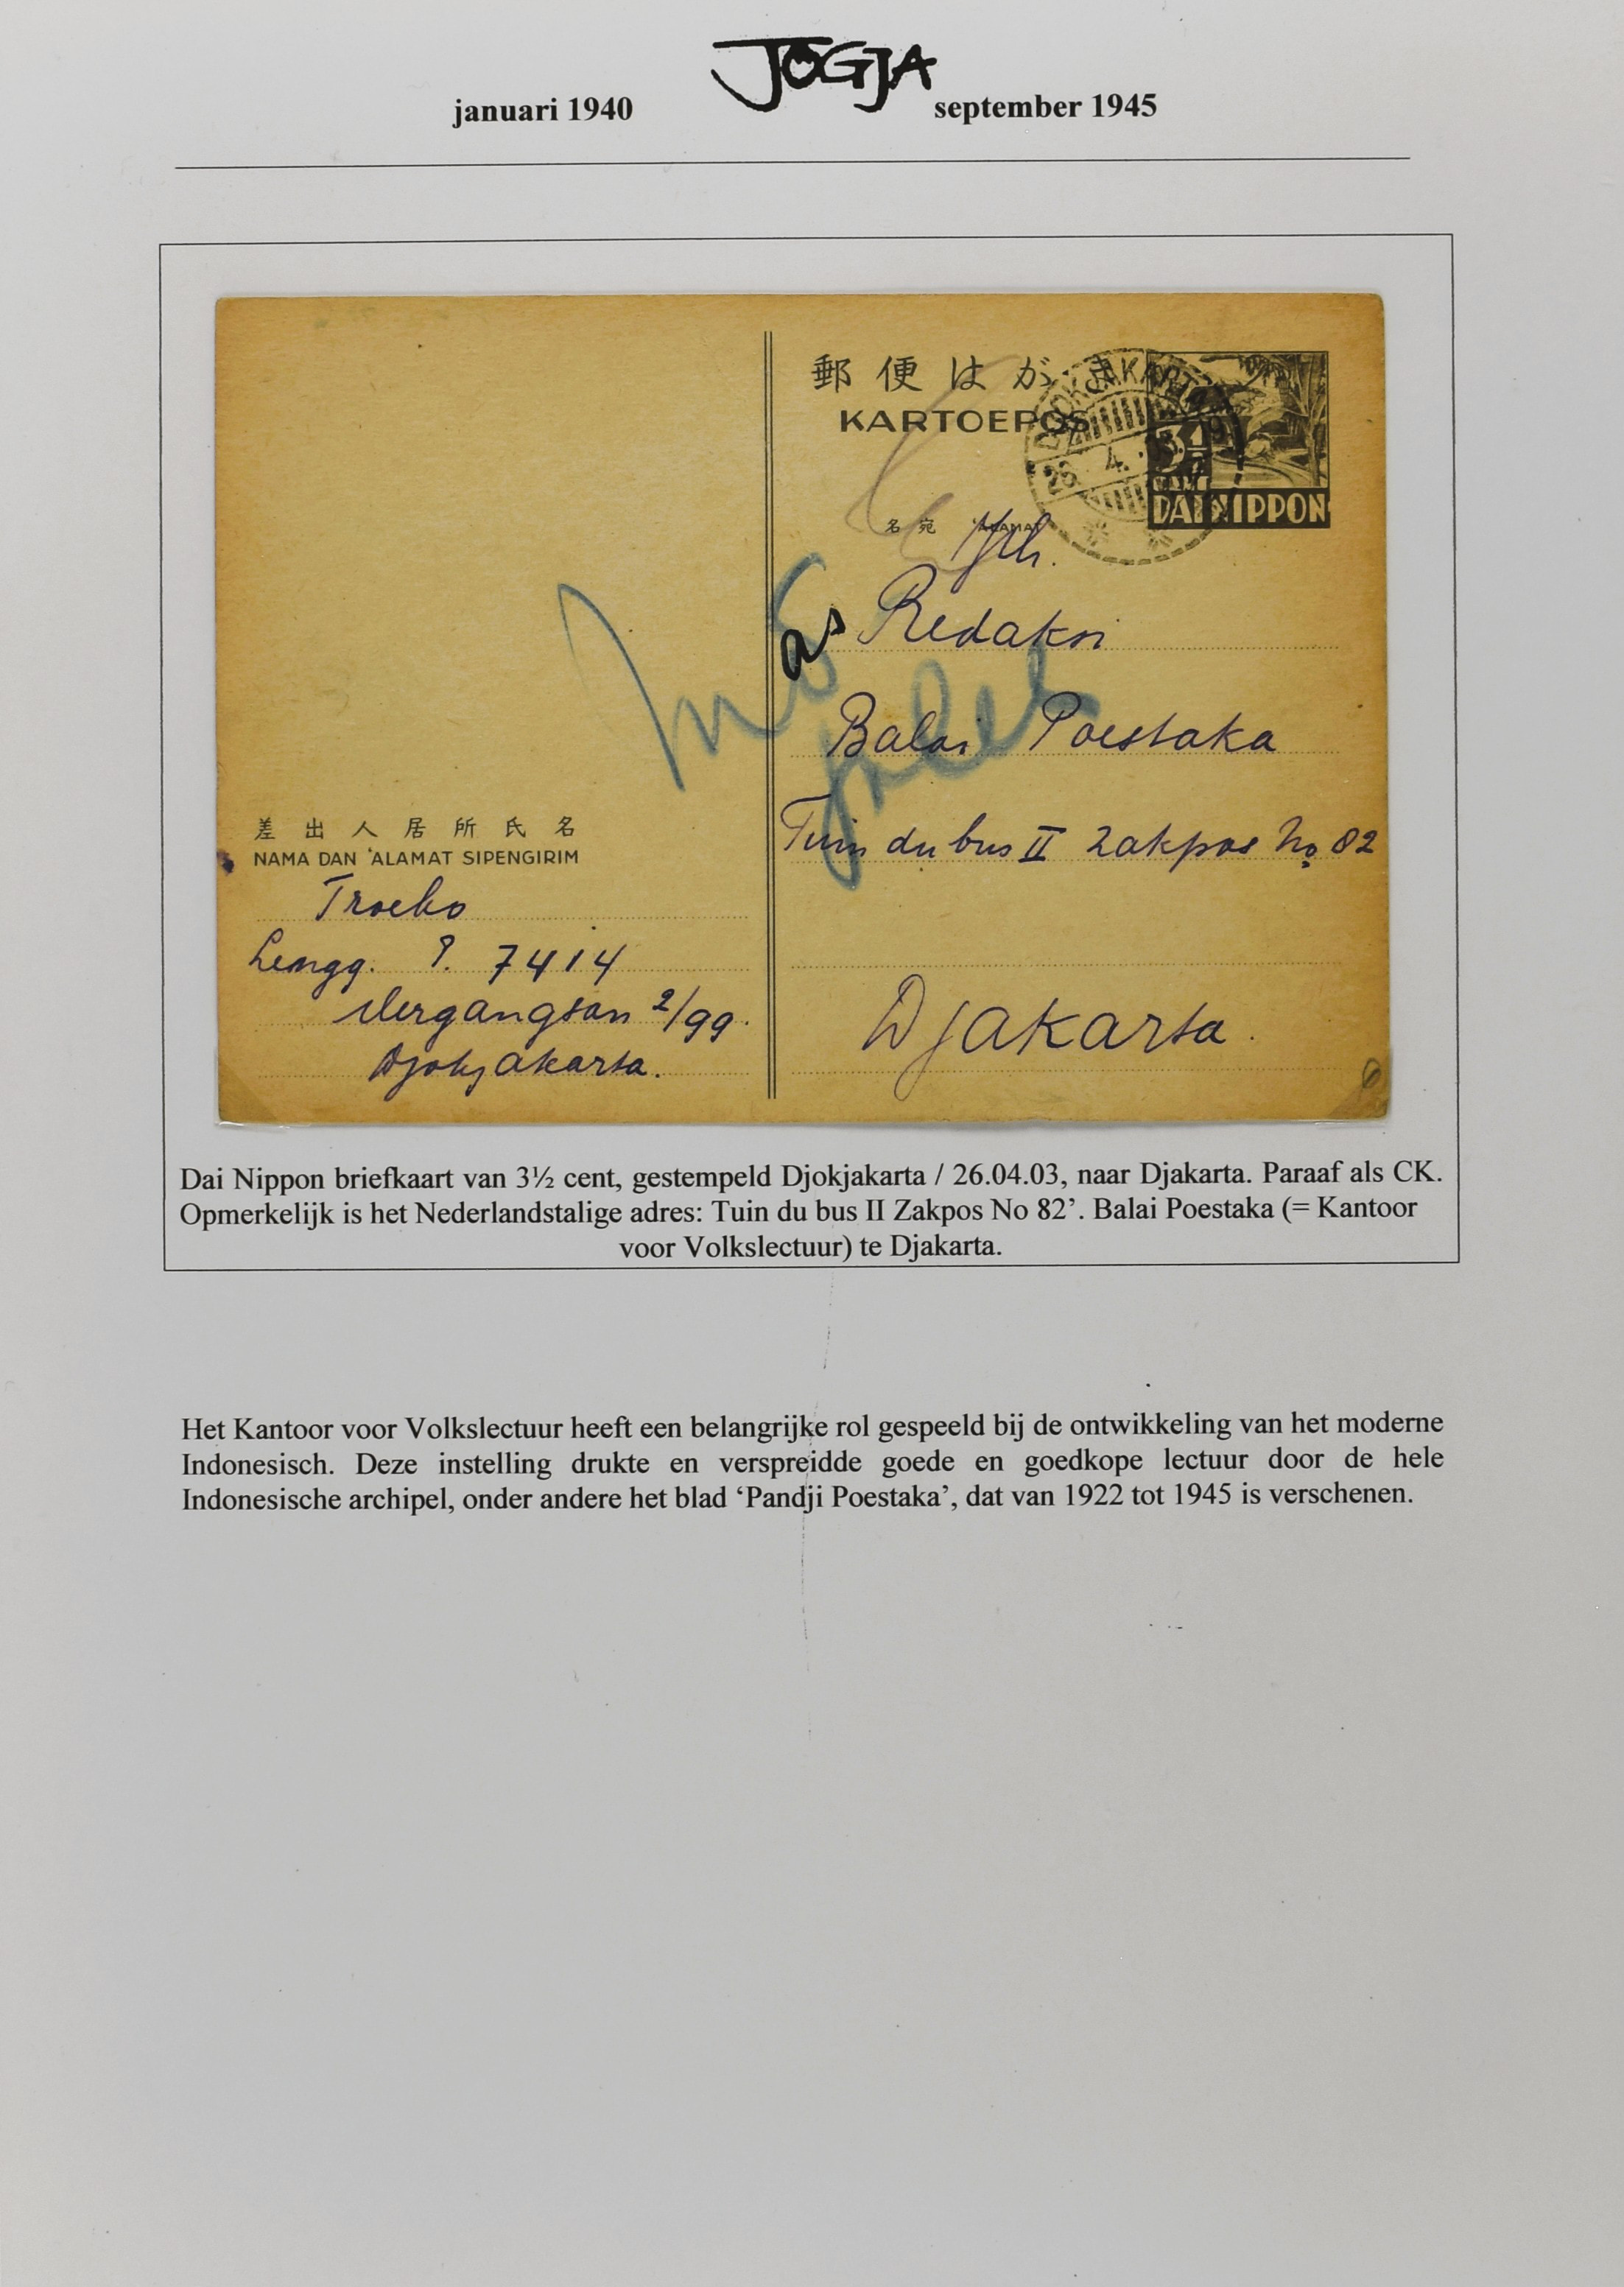 JOGJA
januari 1940 september 1945
郵便はがき
KARTOEPOS
DJOKJAKARTA
26 4.
3½
CENT
DAI NIPPON
名宛 'ALAMAT
Jth.
as Redaksi
Balai Poestaka
Tuin du bus II Zakpos No 82
Djakarta.
差出人居所氏名
NAMA DAN 'ALAMAT SIPENGIRIM
Troebo
Lengg. P. 7414
Wergangsan 2/99.
Djokjakarta.
Dai Nippon briefkaart van 3½ cent, gestempeld Djokjakarta / 26.04.03, naar Djakarta. Paraaf als CK.
Opmerkelijk is het Nederlandstalige adres: Tuin du bus II Zakpos No 82’. Balai Poestaka (= Kantoor
voor Volkslectuur) te Djakarta.
Het Kantoor voor Volkslectuur heeft een belangrijke rol gespeeld bij de ontwikkeling van het moderne
Indonesisch. Deze instelling drukte en verspreidde goede en goedkope lectuur door de hele
Indonesische archipel, onder andere het blad ‘Pandji Poestaka’, dat van 1922 tot 1945 is verschenen.